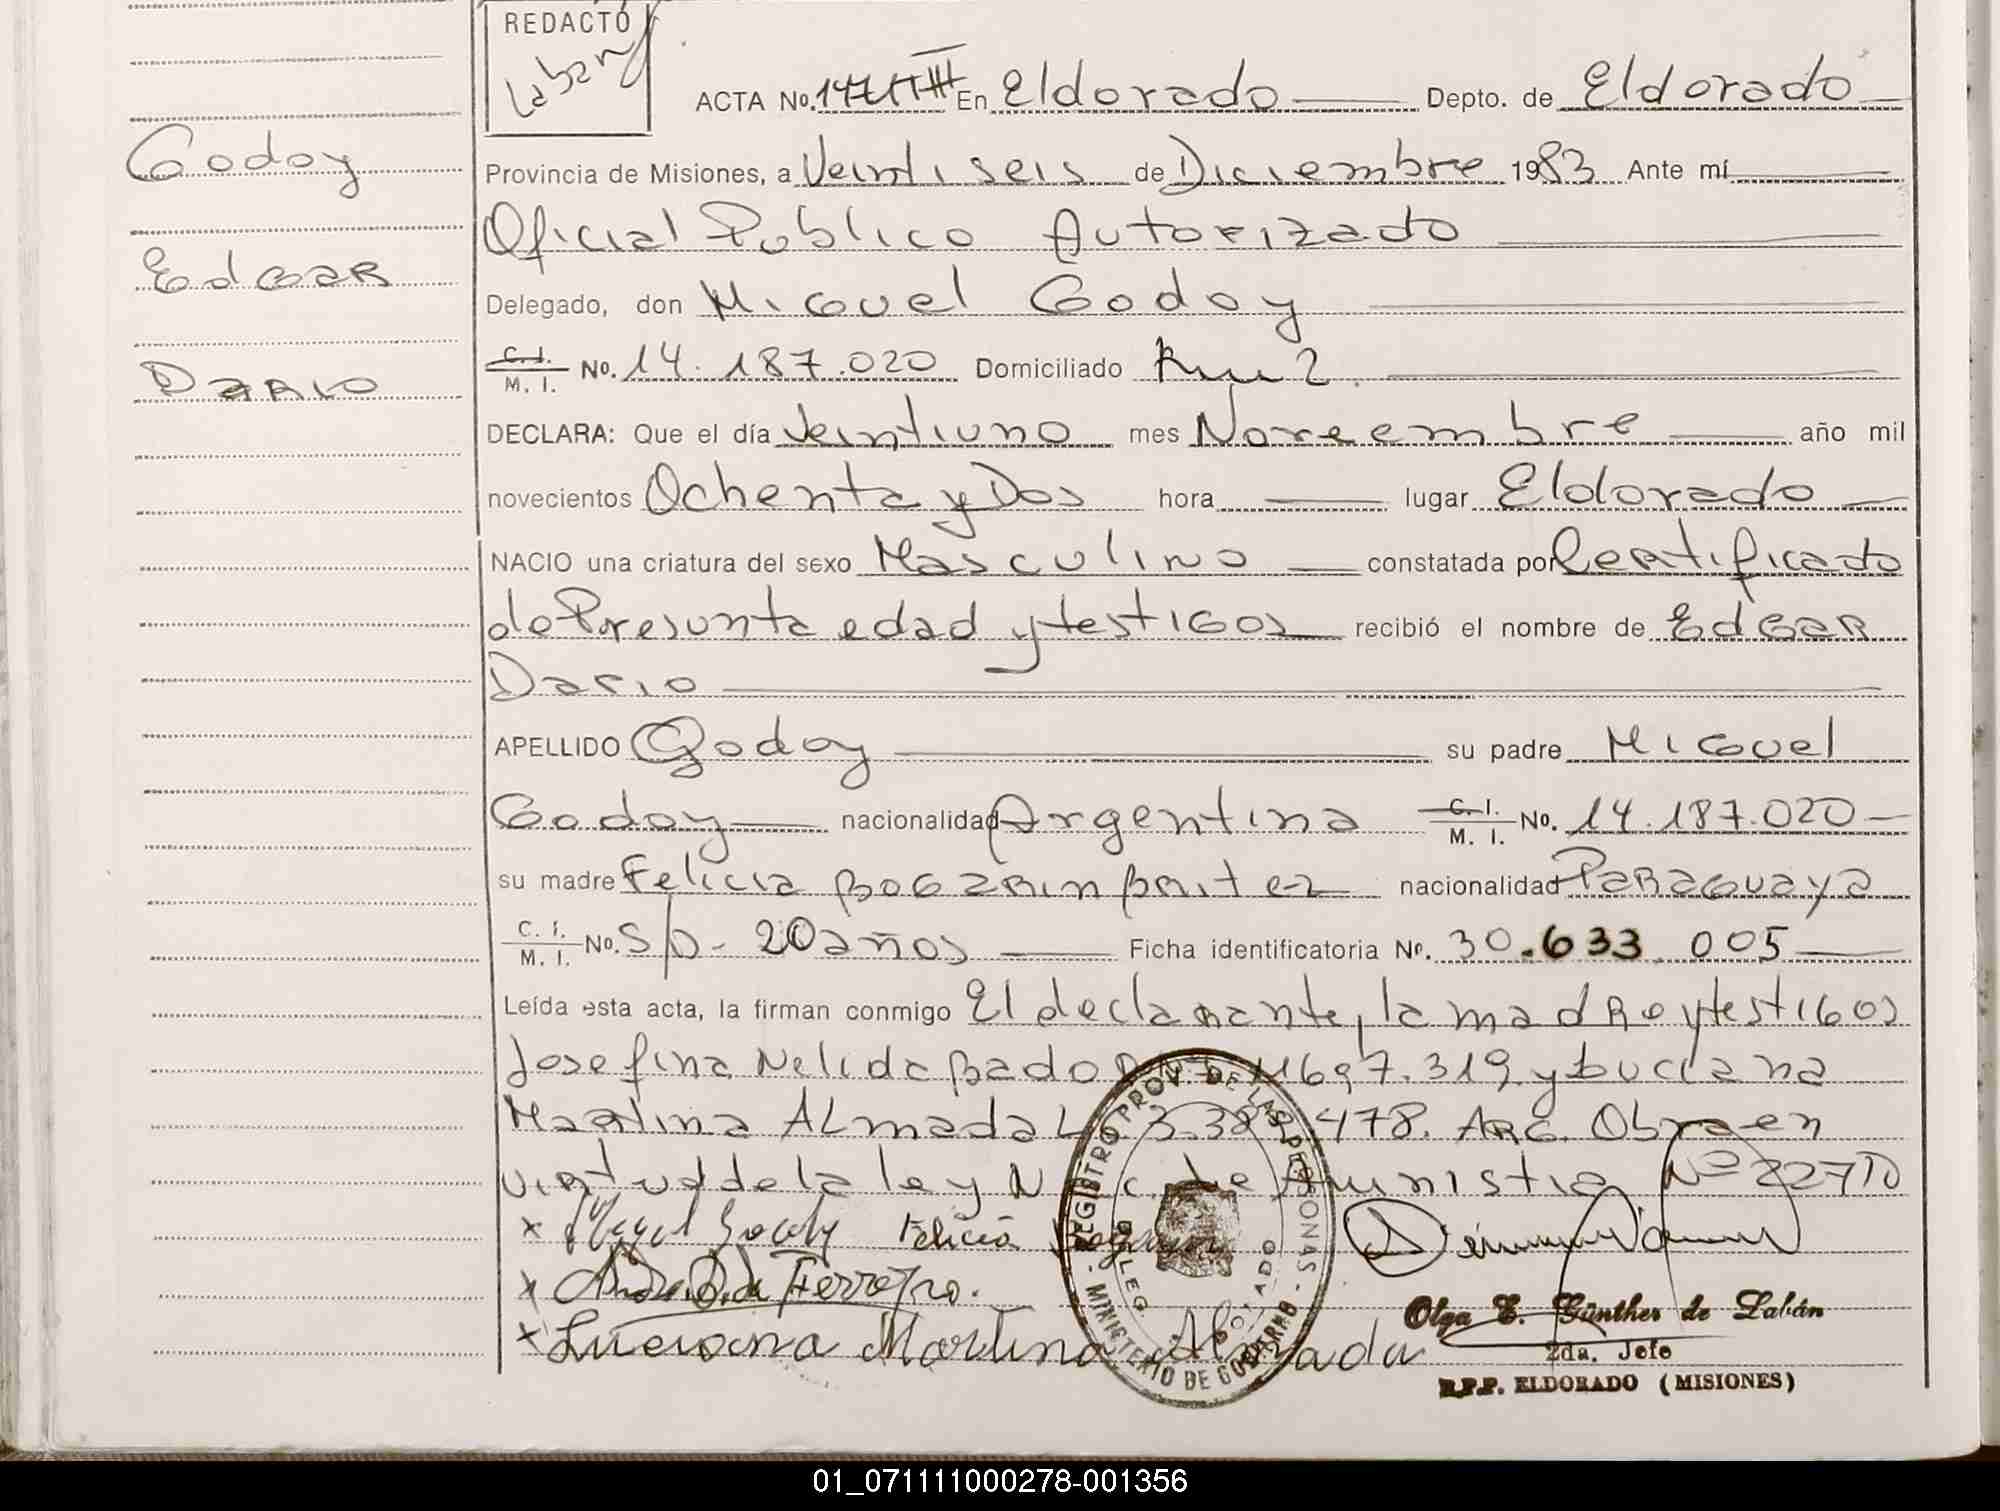 REDACTÓ
Laban
ACTA No. 147 T III En Eldorado Depto. de Eldorado
Godoy
Provincia de Misiones, a Veintiseis de Diciembre 1983 Ante mí
Oficial Publico Autorizado
Edgar
Delegado, don Miguel Godoy
Dario
C. I. M. I. No. 14.187.020 Domiciliado Km 2.
DECLARA: Que el día Veintiuno mes Noviembre año mil
novecientos Ochenta y Dos hora lugar Eldorado
NACIO una criatura del sexo Masculino constatada por Certificado
de Presunta edad y testigos recibió el nombre de Edgar
Dario
APELLIDO Godoy su padre Miguel
Godoy nacionalidad Argentina C. I. M. I. No. 14.187.020
su madre Felicia Bogarin Britez nacionalidad Paraguaya
C. I. M. I. No. S/D - 20 años Ficha identificatoria No. 30.633.005
Leída esta acta, la firman conmigo El declarante, la madre y testigos
Josefina Nelida Bado 11697.319 y Luciana
Martina Almada 3.389.478. Arg. Obra en
virtud de la ley de Amnistia Nº 22710
x Miguel Godoy Felicia Bogarin
x de Ferreyro.
x Luciana Martina Almada
REGISTRO PROV. DE LAS PERSONAS - MINISTERIO DE GOBIERNO -
DELEG. ELDORADO
Olga E. Günther de Labán
2da. Jefe
R.P.P. ELDORADO (MISIONES)
01_071111000278-001356